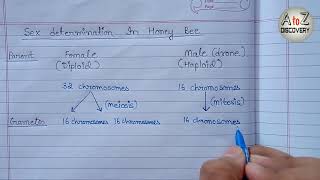 A to Z
DISCOVERY
Sex determination In Honey Bee
Parent Female Male (drone)
(Diploid) (Haploid)
32 chromosomes 16 chromosomes
(meiosis) (mitosis)
Gametes 16 chromosomes 16 chromosomes 16 chromosomes